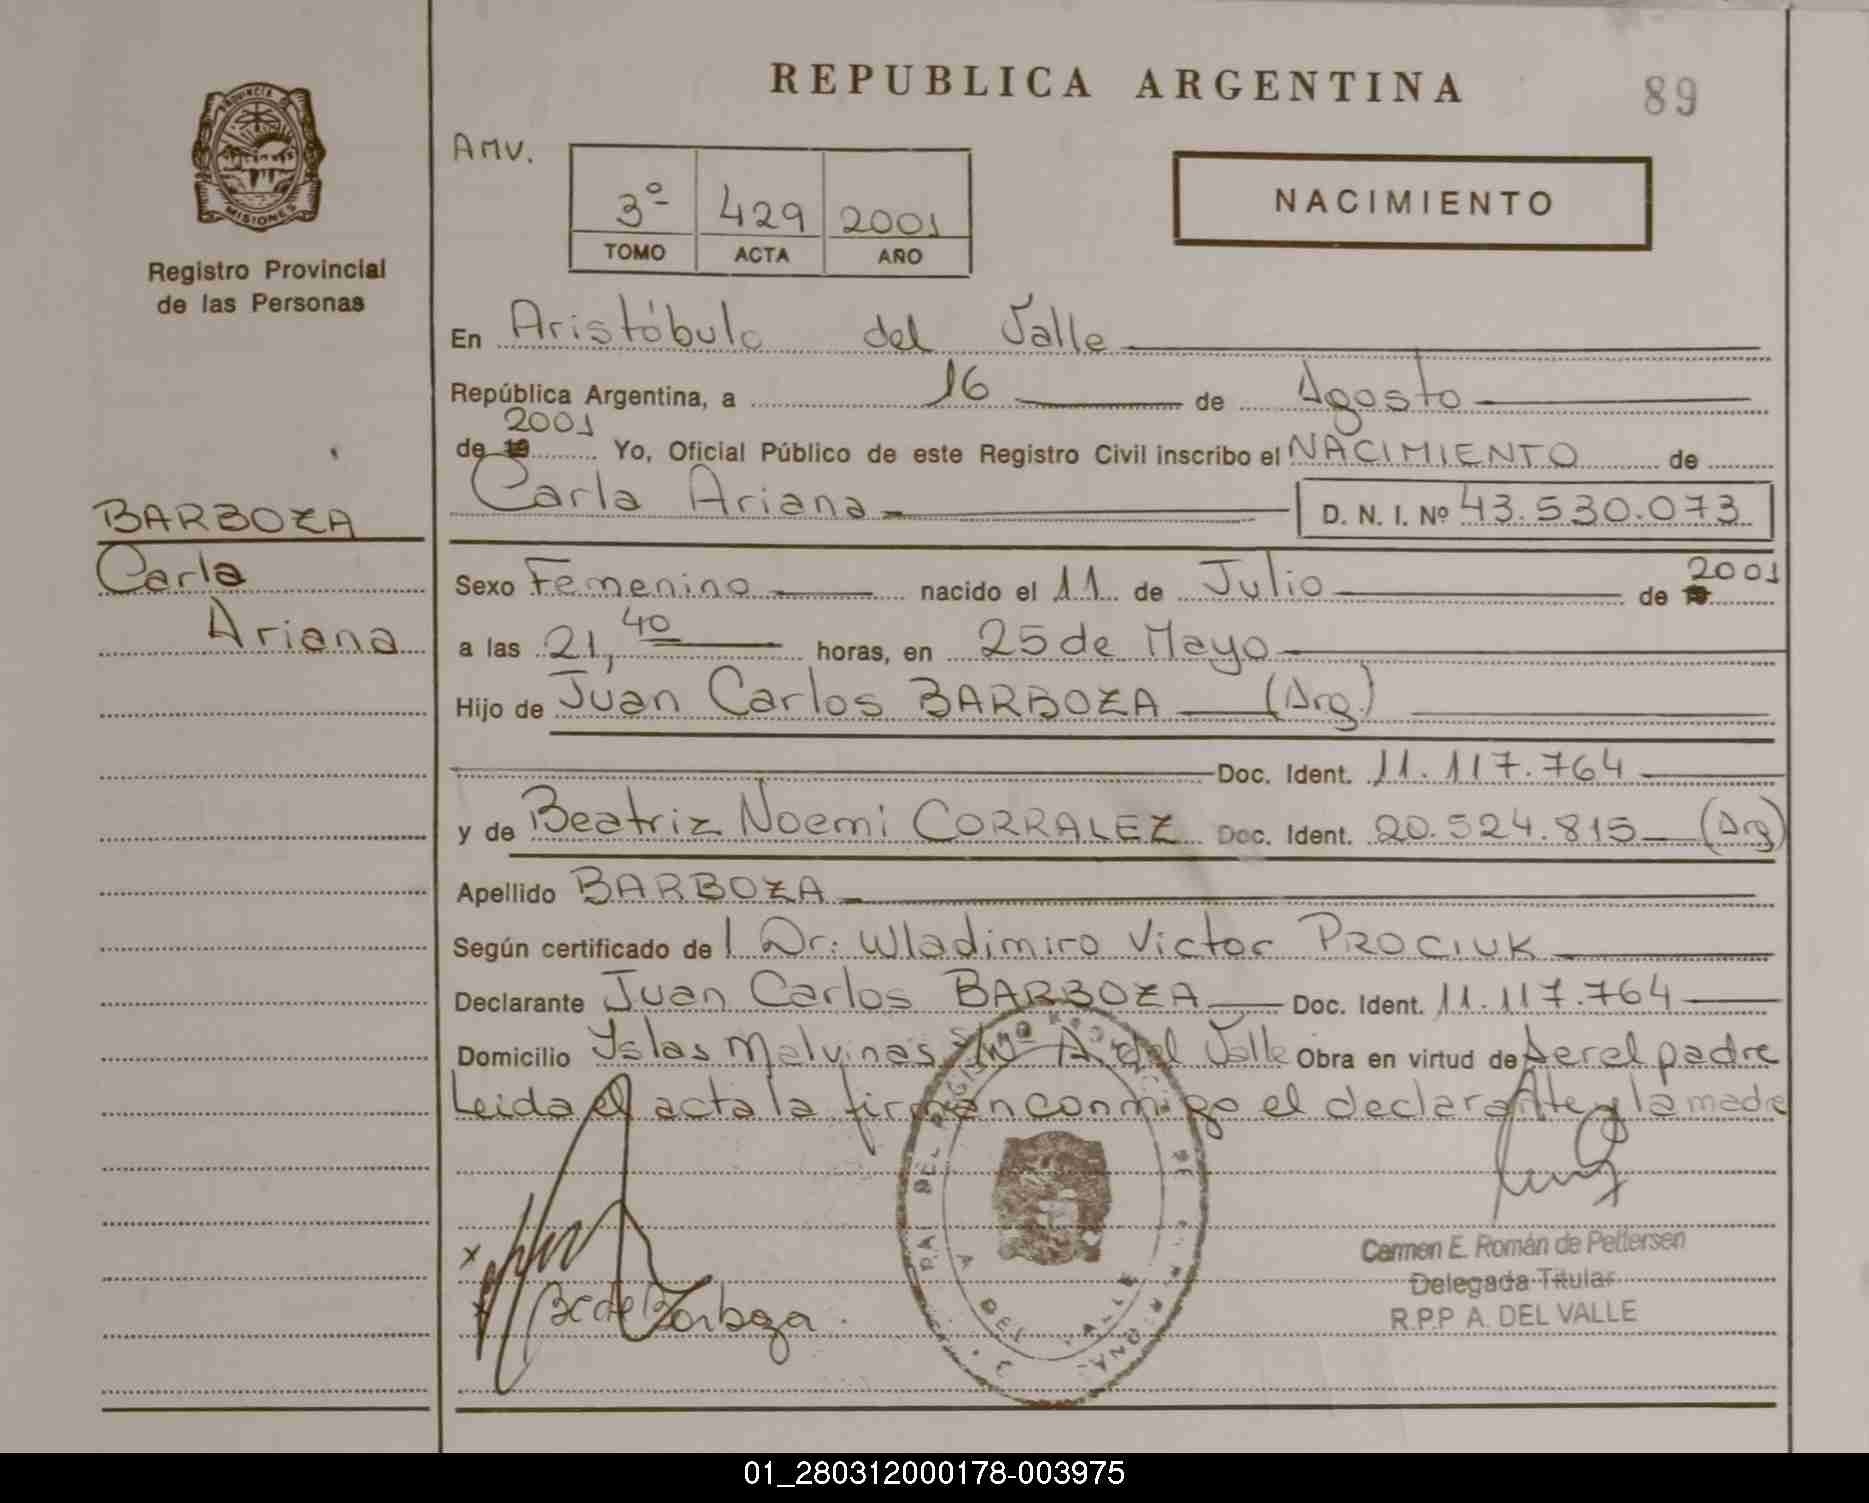 REPUBLICA ARGENTINA
89
PROVINCIA DE
MISIONES
Registro Provincial
de las Personas
AMV.
3º 429 2001
TOMO ACTA AÑO
NACIMIENTO
En Aristóbulo del Valle
República Argentina, a 16 de Agosto
de 2001 Yo, Oficial Público de este Registro Civil inscribo el NACIMIENTO de
Carla Ariana D. N. I. Nº 43.530.073
BARBOZA
Carla
Ariana
Sexo Femenino nacido el 11 de Julio de 2001
a las 21,40 horas, en 25 de Mayo
Hijo de Juan Carlos BARBOZA (Arg.)
Doc. Ident. 11.117.764
y de Beatriz Noemi CORRALEZ Doc. Ident. 20.524.815 (Arg)
Apellido BARBOZA
Según certificado de l Dr: Wladimiro Victor PROCIUK
Declarante Juan Carlos BARBOZA Doc. Ident. 11.117.764
Domicilio Islas Malvinas S/Nº A. del Valle Obra en virtud de ser el padre
Leida el acta la firman conmigo el declarante y la madre
BC de Barboza.
Carmen E. Román de Pettersen
Delegada Titular
R.P.P A. DEL VALLE
A. DEL VALLE
01_280312000178-003975